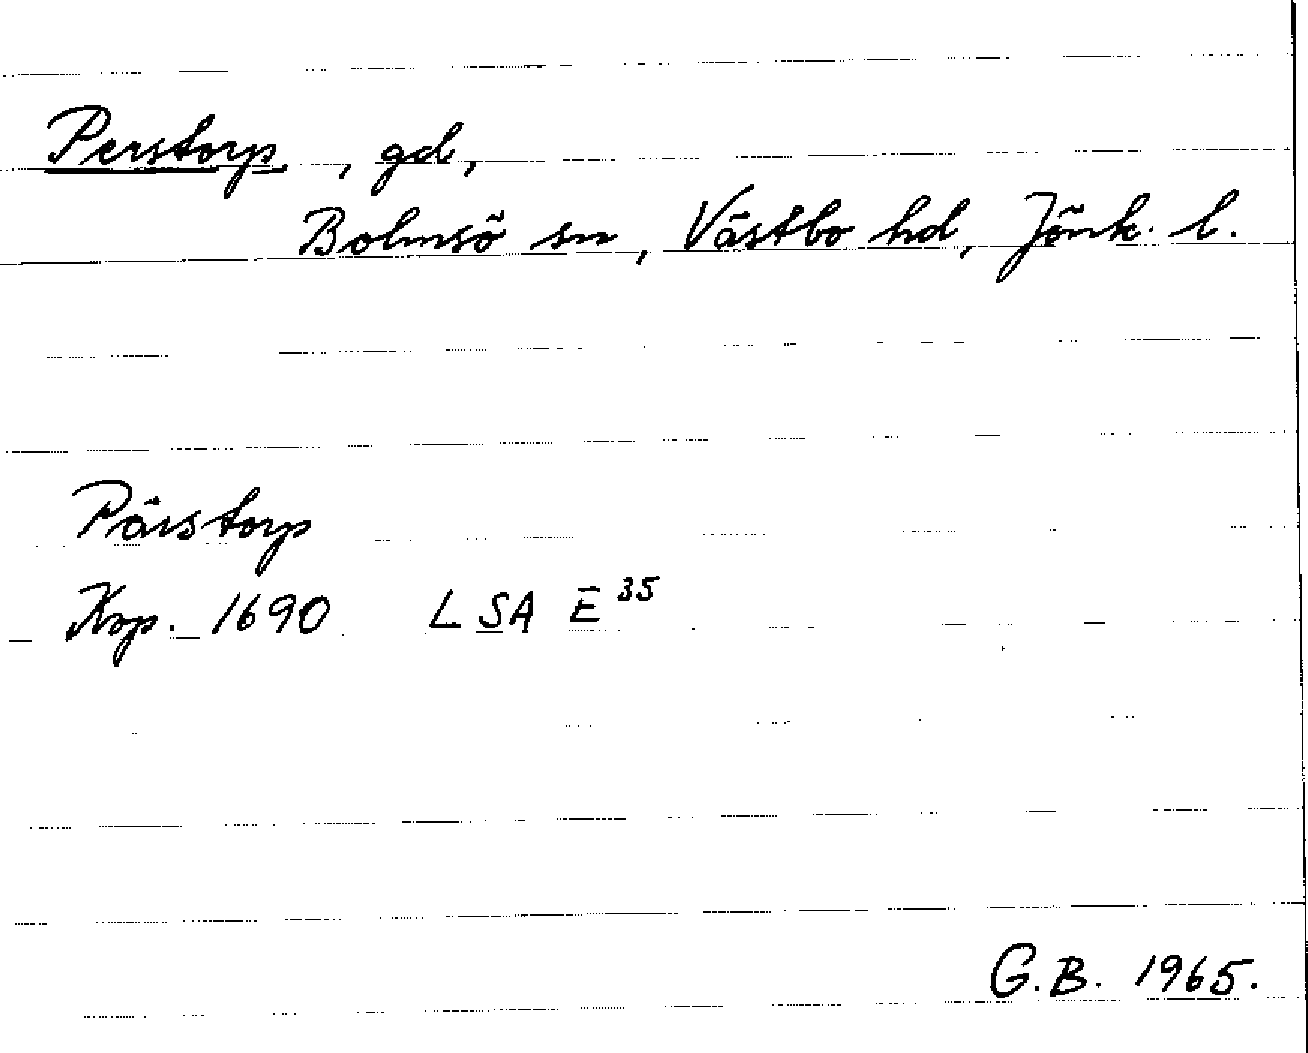 Perstorp, gd,
Bolmsö sn, Västbo hd, Jönk. l.
Pärstorp
Kop. 1690 LSA E 35
G.B. 1965.